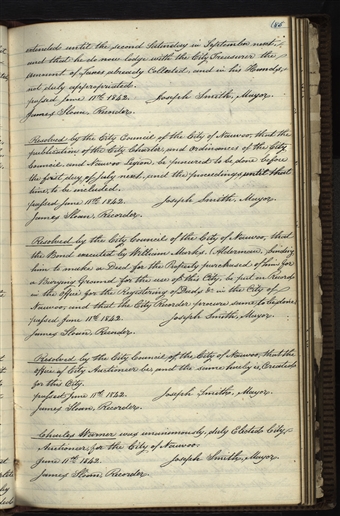 86
extended until the second Saturday in September next;
and that he do now lodge with the City Treasurer the
amount of Taxes already Collected, and in his Hands,
not duly appropriated.
passed June 11th 1842. Joseph Smith, Mayor.
James Sloan, Recorder.
Resolved by the City Council of the City of Nauvoo, that the
publication of the City Charter, and Ordinances of the City
Council, and Nauvoo Legion, be procured to be done before
the first day of July next, and the proceedings until that
time, to be included.
passed June 11th 1842. Joseph Smith, Mayor.
James Sloan, Recorder.
Resolved by the City Council of the City of Nauvoo, that
the Bond executed by William Marks, (Alderman,) binding
him to make a Deed for the Property purchased of him for
a Burying Ground for the use of this City, be put on Record
in the Office for the Registering of Deeds &c in the City of
Nauvoo, and that the City Recorder procure same to be done.
passed June 11th 1842. Joseph Smith, Mayor.
James Sloan, Recorder.
Resolved by the City Council of the City of Nauvoo, that the
office of City Auctioneer be, and the same hereby is, Created
for this City.
passed June 11th 1842. Joseph Smith, Mayor.
James Sloan, Recorder.
Charles Warner was unanimously, duly Elected City
Auctioneer, for the City of Nauvoo.
June 11th 1842. Joseph Smith, Mayor.
James Sloan, Recorder.